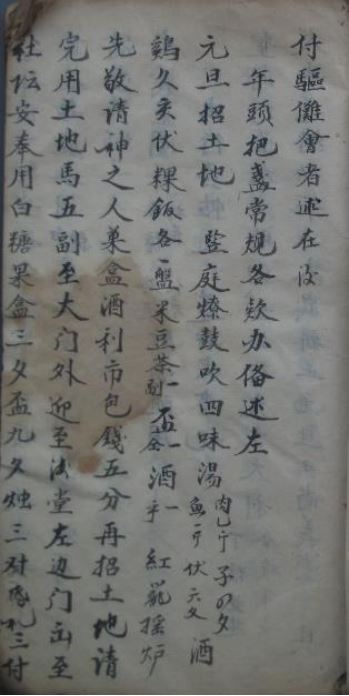 付驅儺會者述在後
年頭把盞常規各欵办俻述左
元旦招土地 監庭燎鼓吹四味湯 子四夕 酒
鷄久灸伏粿飯各一盤米豆茶 一盃 酒一 紅 搖炉
先敬請神之人菓盒酒利市包錢五分再招土地請
完用土地馬五副至大门外迎至法堂左边门出至
社坛安奉用白糖果盒三夕盃九夕烛三对 三付